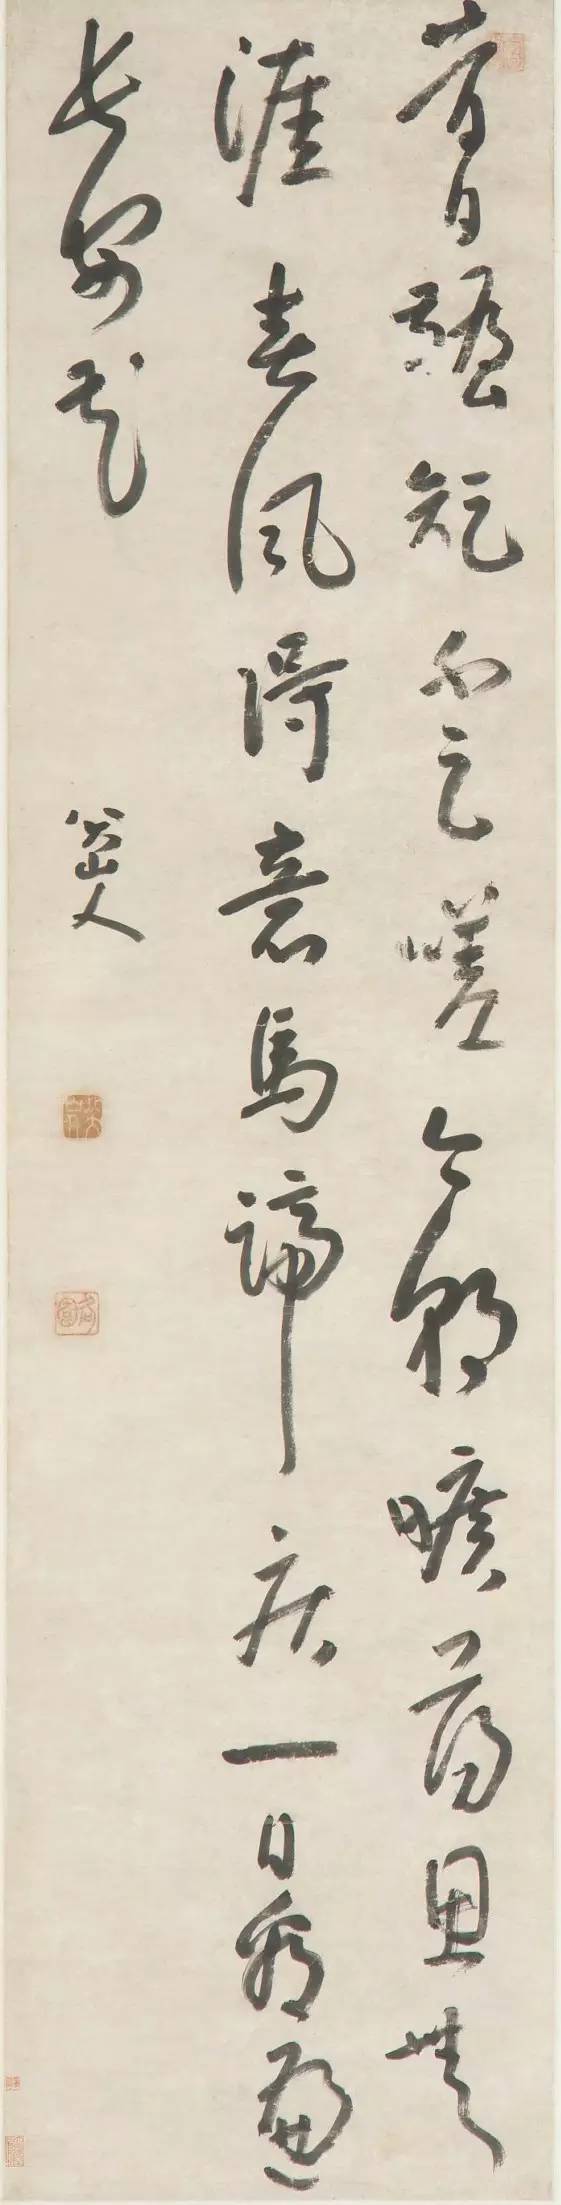 昔日齷齪不足嗟今朝曠蕩恩無
涯春風得意馬蹄疾一日看盡
長安花
八大山人